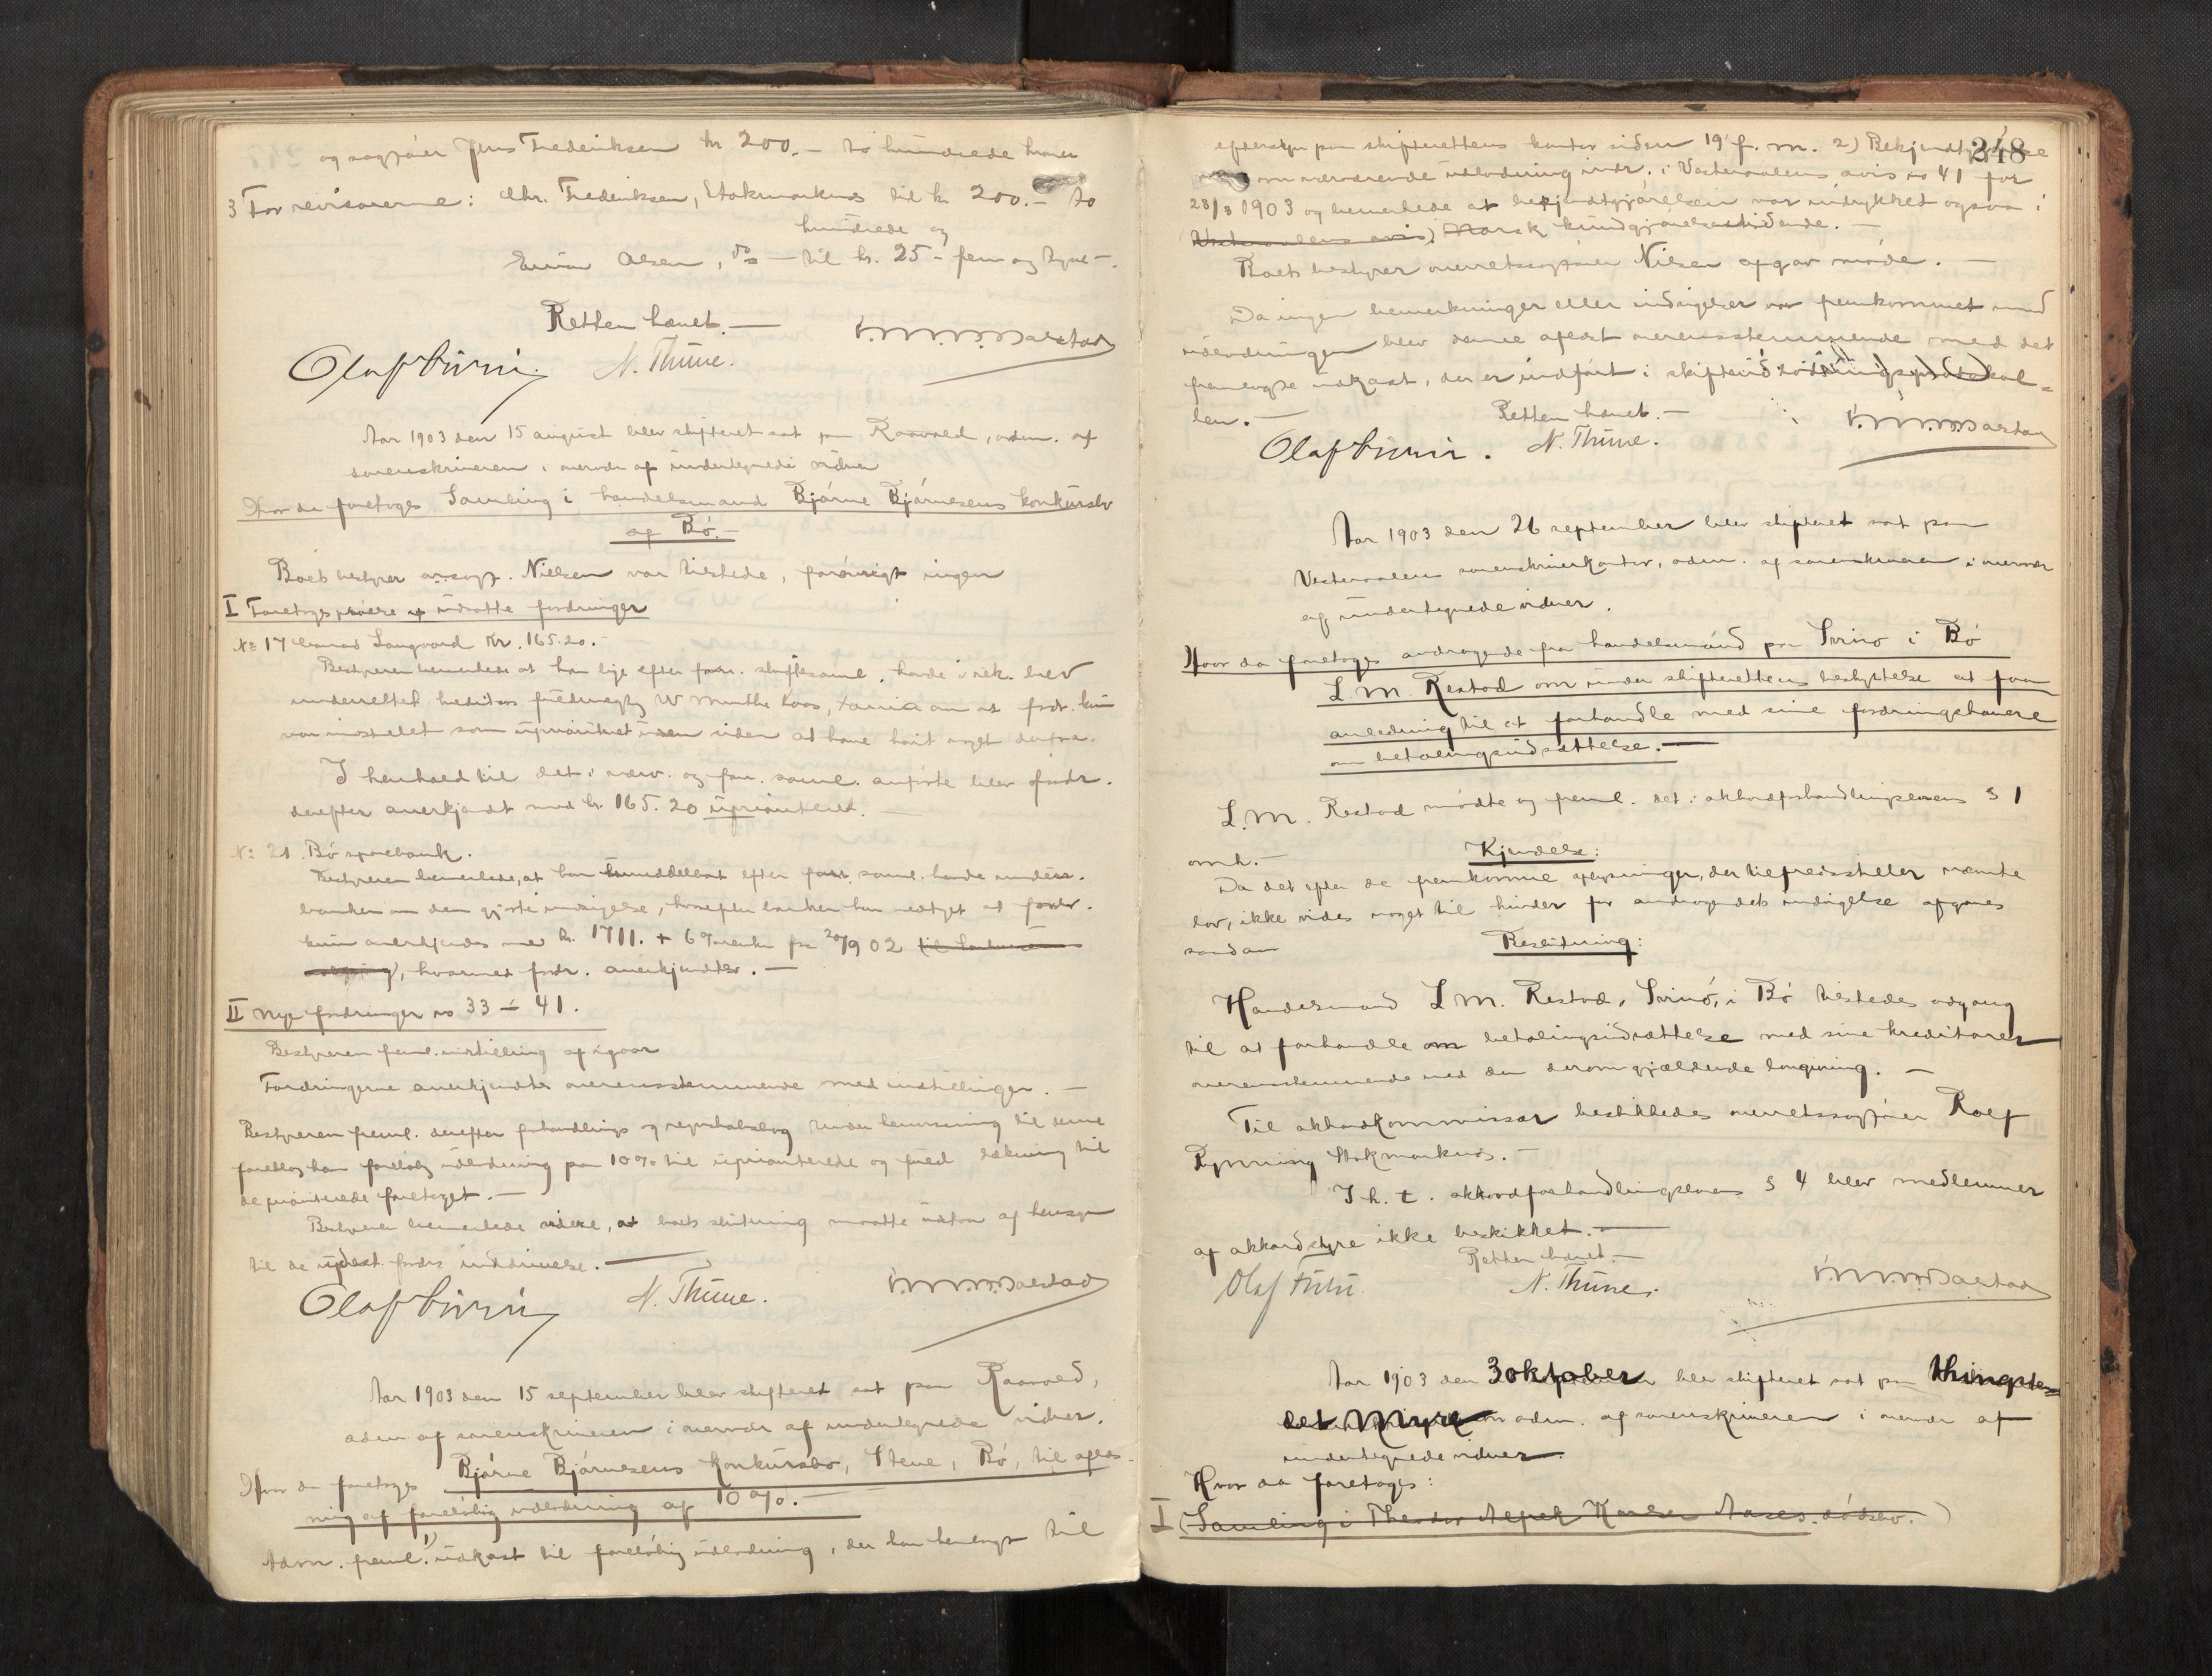 og sagfører Jens Frederiksen kr 200.- to hundrede kroner
3 For revisorerne: Chr. Frederiksen, Stokmarknes til kr 200.- to
hundrede og
Olsen, do - til kr. 25 - fem og tyve -.
Retten hævet. -
Olaf N. Thune.
Aar 1903 den 15 august blev skifteret sat paa Raavold, adm. af
sorenskriveren i overvær af undertegnede vidner
Hvor da foretoges Samling i handelsmand Bjarne Bjørnesens konkursbo
af Bø. -
Boets bestyrer orsagf. Nielsen var tilstede, forøvrigt ingen
I Foretoges prøvelse af udsatte fordringer
No 17 Langaard Kr. 165.20. -
Bestyreren bemerkede at han lige efter forr. skiftesaml. havde i rek. brev
underrettet kreditors fuldmægtig W Munthe Kaas, om at fordr. kun
var indstillet som uprioritert uden siden at have hørt noget derfra.
I henhold til det i nærv. og forr. saml. anførte blev fordr.
derefter anerkjendt med kr. 165.20 uprioriteret. -
No 21. Bø sparebank.
Bestyreren bemerkede, at han umiddelbart efter forr. saml. havde underr.
banken om den gjorte indsigelse, hvorefter banken har vedtaget at fordr.
kun anerkjendes med kr. 1711. + 6 % renter fra 20/9 02
, hvormed fordr. anerkjendtes. -
II Nye fordringer no 33 - 41.
Bestyreren freml. indstilling af igaar
Fordringerne anerkjendtes overensstemmende med indstillingen. -
Bestyreren freml. derefter forhandlings og regnskabsbog under henvisning til denne
foreslog han foreløbig udlodning paa 10 % til uprioriterede og fuld dækning til
de prioriterede foretaget. -
Bestyreren bemerkede videre, at boets slutning maatte udstaa af hensyn
til de udest. fordrs inddrivelse. -
Olaf N. Thune.
Aar 1903 den 15 september blev skifteret sat paa Raavold,
adm af sorenskriveren i overvær af undertegnede vidner.
Hvor da foretoges Bjarne Bjørnesens konkursbo, Steine, Bø, til aflæs-
ning af foreløbig udlodning af 10 %. -
Adm. freml. 1) udkast til foreløbig udlodning, der har henligt til
248
eftersyn paa skifterettens kontor siden 19 f. m. 2) Bekjendtgjørelse
om nærværende udlodning indr. i Vesteraalens avis no 41 for
28/8 1903 og bemerkede at bekjendtgjørelsen var indrykket ogsaa i
(Vesteraalens avis) Norsk kundgjørelsestidende. -
Boets bestyrer overretssagfører Nilsen afgav møde. -
Da ingen bemerkninger eller indsigelser var fremkommet mod
udlodningen blev denne aflæst overensstemmende med det
fremlagte udkast, der er indført i skifteudlodningsprotokol-
len. -
Retten hævet. -
Olaf . N. Thune.
Aar 1903 den 26 september blev skifteret sat paa
Vesteraalens sorenskriverkontor, adm. af sorenskriveren i overvær
af undertegnede vidner.
Hvor da foretoges andragende fra handelsmand paa Svinø i Bø
L M. Restad om under skifterettens bestyrelse at faa
anledning til at forhandle med sine fordringshavere
om betalingsudsættelse. -
L. M. Restad mødte og freml. det i akkordforhandlingslovens § 1
omh. -
Kjendelse:
Da det efter de fremkomne oplysninger, der tilfredsstiller nævnte
lov, ikke vides noget til hinder for andragendets indvilgelse afgaves
saadan
Beslutning:
Handelsmand L M. Restad, Svinø, i Bø tilstedes adgang
til at forhandle om betalingsudsættelse med sine kreditorer
overensstemmende med den derom gjældende lovgivning. -
Til akkordkommissær beskikkedes overretssagfører Rolf
Rynning Stokmarknes. -
I h. t. akkordforhandlingslovens § 4 blev medlemmer
af akkordstyre ikke beskikket. -
Retten hævet -
Olaf N. Thune.
Aar 1903 den 3 oktober blev skifteret sat paa thingste-
det Myre adm. af sorenskriveren i overvær af
undertegnede vidner.
Hvor da foretoges:
I (Samling i Theodor Alfred Karlsen Aases dødsbo.)